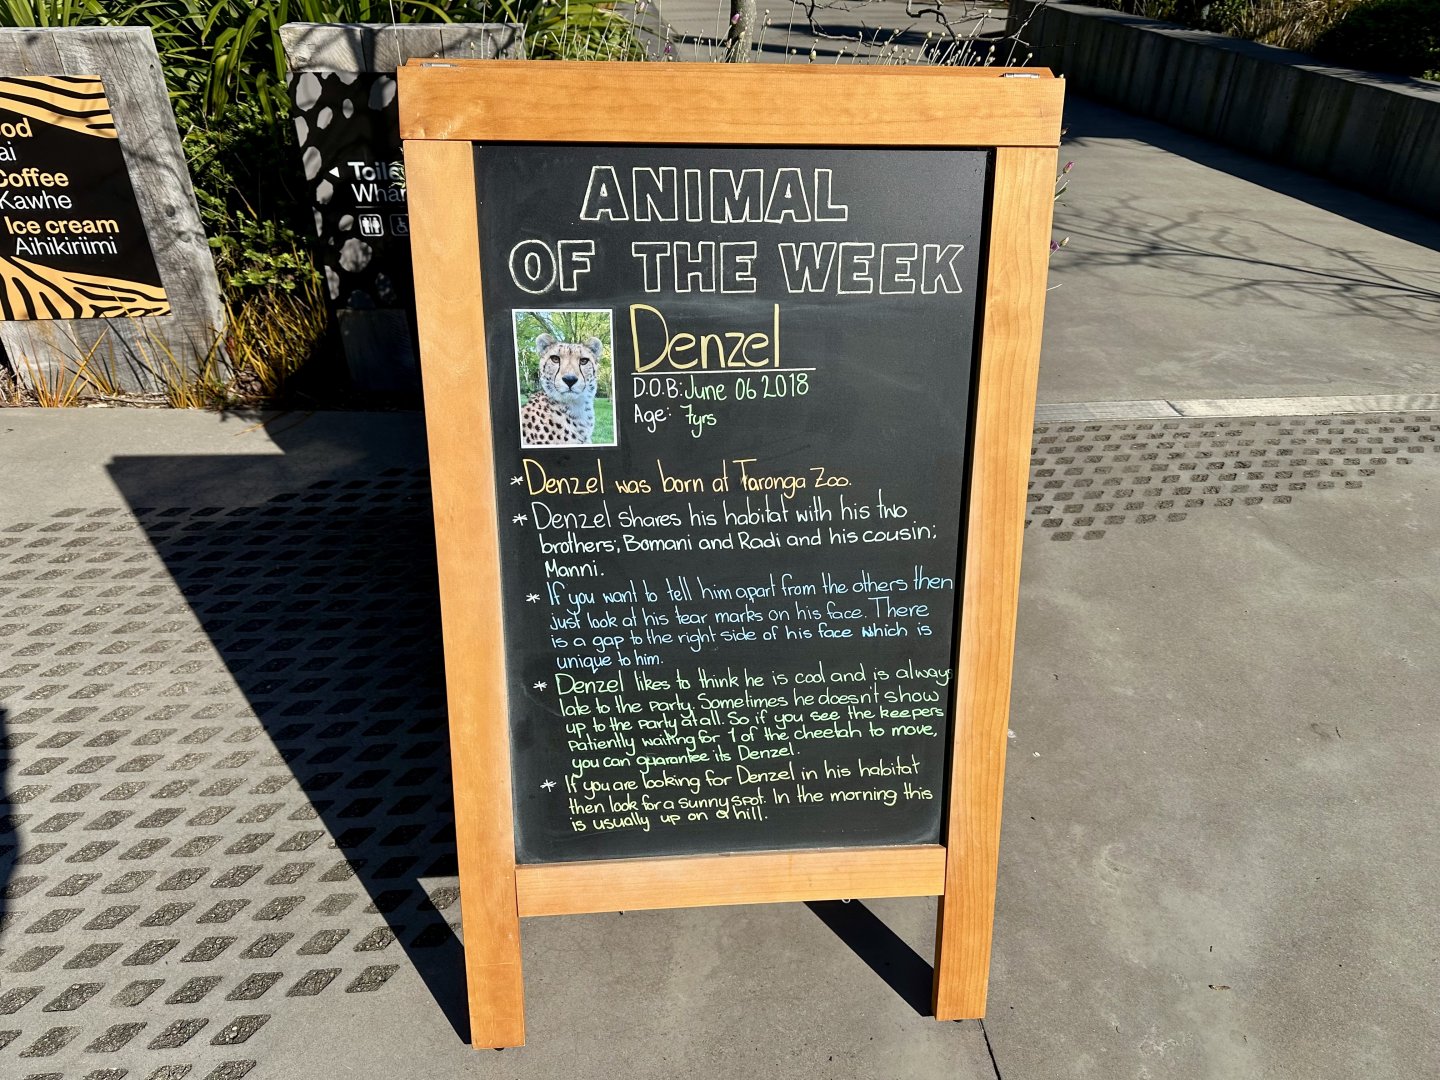 Coffee
Kawhe
Ice cream
Aihikiriimi
ANIMAL
OF THE WEEK
Denzel
D.O.B: June 06 2018
Age: 7yrs
* Denzel was born at Taronga Zoo.
* Denzel shares his habitat with his two
brothers; Bomani and Radi and his cousin;
Manni.
* If you want to tell him apart from the others then
just look at his tear marks on his face. There
is a gap to the right side of his face which is
unique to him.
* Denzel likes to think he is cool and is always
late to the party. Sometimes he doesn't show
up to the party at all. So if you see the keepers
patiently waiting for 1 of the cheetah to move,
you can guarantee its Denzel.
* If you are looking for Denzel in his habitat
then look for a sunny spot. In the morning this
is usually up on a hill.